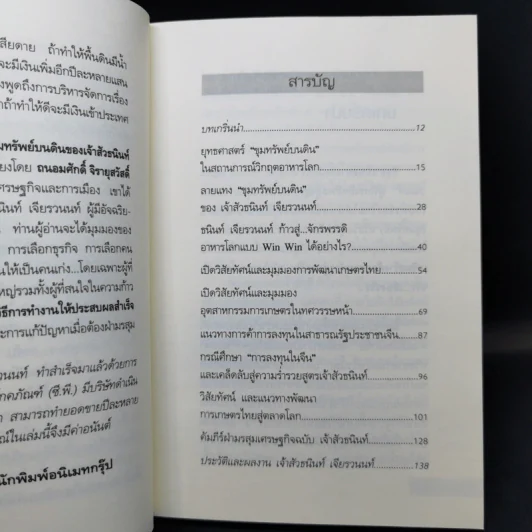 สียดาย ถ้าทำให้พื้นดินมีน้ำ
จะมีเงินเพิ่มอีกปีละหลายแสน
งพูดถึงการบริหารจัดการเรื่อง
าถ้าทำให้ดีจะมีเงินเข้าประเทศ
ุมทรัพย์บนดินของเจ้าสัวธนินท์
ยงโดย ถนอมศักดิ์ จิรายุสวัสดิ์
ศรษฐกิจและการเมือง เขาได้
นินท์ เจียรวนนท์ ผู้มีอัจฉริย-
ท่านผู้อ่านจะได้มุมมองของ
การเลือกธุรกิจ การเลือกคน
นให้เป็นคนเก่ง...โดยเฉพาะผู้ที่
หญ่รวมทั้งผู้ที่สนใจในความก้าว
วิธีการทำงานให้ประสบผลสำเร็จ
ะการแก้ปัญหาเมื่อต้องฝ่ามรสุม
วนนท์ ทำสำเร็จมาแล้วด้วยการ
ภคภัณฑ์ (ซี.พี.) มีบริษัทดำเนิน
สามารถทำยอดขายปีละหลาย
ณ์ในเล่มนี้จึงมีค่าอนันต์
นักพิมพ์อนิเมทกรุ๊ป
สารบัญ
บทเกริ่นนำ...12
ยุทธศาสตร์ "ขุมทรัพย์บนดิน"
ในสถานการณ์วิกฤตอาหารโลก...15
ลายแทง "ขุมทรัพย์บนดิน"
ของ เจ้าสัวธนินท์ เจียรวนนท์...28
ธนินท์ เจียรวนนท์ ก้าวสู่...จักรพรรดิ
อาหารโลกแบบ Win Win ได้อย่างไร?...40
เปิดวิสัยทัศน์และมุมมองการพัฒนาเกษตรไทย...54
เปิดวิสัยทัศน์และมุมมอง
อุตสาหกรรมการเกษตรในทศวรรษหน้า...69
แนวทางการค้าการลงทุนในสาธารณรัฐประชาชนจีน...87
กรณีศึกษา "การลงทุนในจีน"
และเคล็ดลับสู่ความร่ำรวยสูตรเจ้าสัวธนินท์...96
วิสัยทัศน์ และแนวทางพัฒนา
การเกษตรไทยสู่ตลาดโลก...101
คัมภีร์ฝ่ามรสุมเศรษฐกิจฉบับ เจ้าสัวธนินท์...128
ประวัติและผลงาน เจ้าสัวธนินท์ เจียรวนนท์...138